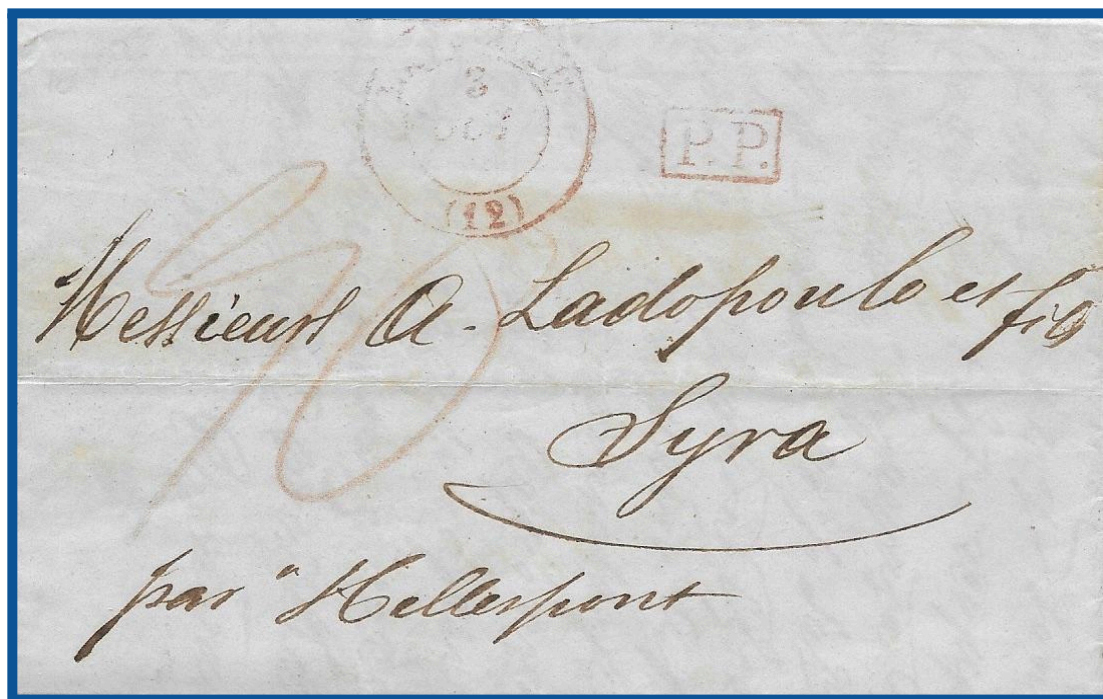 3
OCT
(12)
P.P.
Messieurs A. Ladopoulo et fils
Syra
par "Hellespont